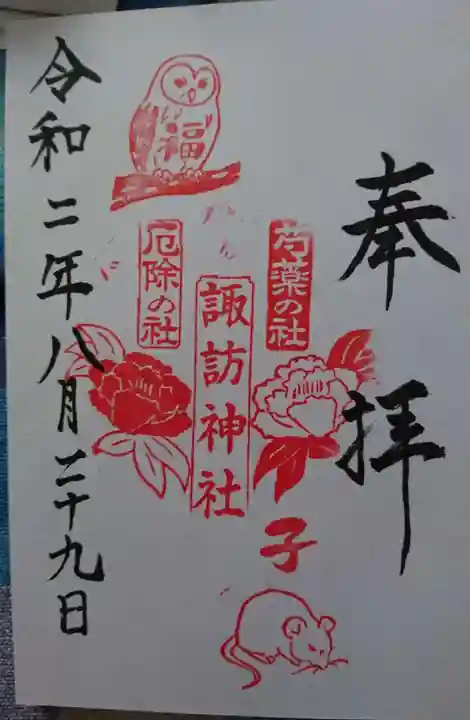 奉拝
芍薬の社
諏訪神社
厄除の社
福
子
令和二年八月二十九日